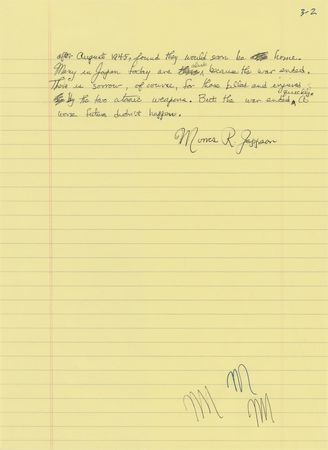 3-2
after August 1945, found they would soon be home.
Many in Japan today are alive because the war ended.
There is sorrow, of course, for those killed and injured
by the two atomic weapons. But the war ended quickly. A
worse future didn't happen.
Morris R Jeppson
M
M M